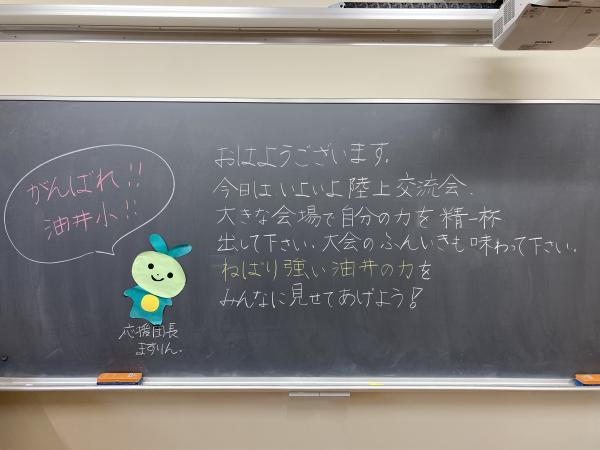 がんばれ!!
油井小!!
おはようございます。
今日はいよいよ陸上交流会。
大きな会場で自分の力を精一杯
出して下さい。大会のふんいきも味わって下さい。
ねばり強い油井の力を
みんなに見せてあげよう!
応援団長
ますりん.